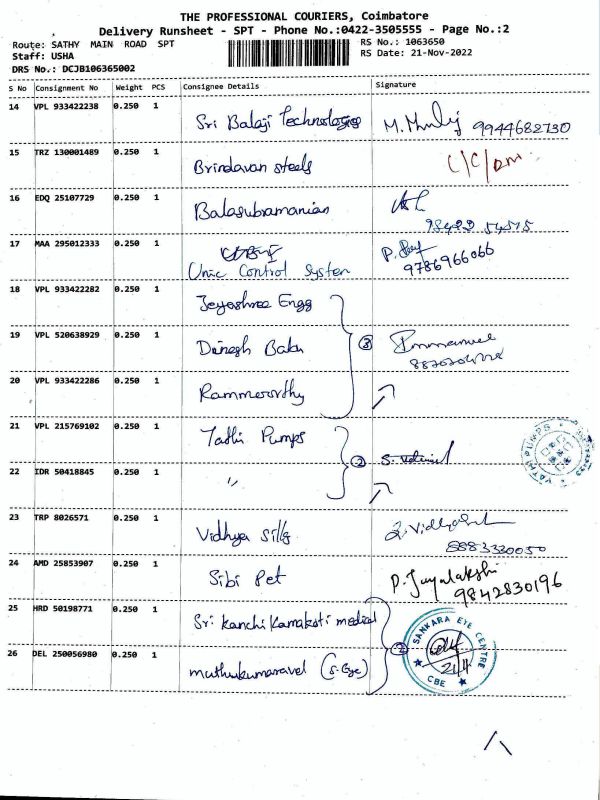 THE PROFESSIONAL COURIERS, Coimbatore
Delivery Runsheet - SPT - Phone No.:0422-3505555 - Page No.:2
Route: SATHY MAIN ROAD SPT
RS No.: 1063650
Staff: USHA
RS Date: 21-Nov-2022
DRS No.: DCJB106365002
S No Consignment No Weight PCS Consignee Details Signature
14 VPL 933422238 0.250 1 Sri Balaji Technologies 9944682730
15 TRZ 130001489 0.250 1 Brindavan steels
16 EDQ 25107729 0.250 1 Balasubramanian
17 MAA 295012333 0.250 1
Unic Control System 9786966066
18 VPL 933422282 0.250 1 Jeyashree Engg
19 VPL 520638929 0.250 1 Dinesh Babu ③ Emmanuel
20 VPL 933422286 0.250 1 Rammoorthy
21 VPL 215769102 0.250 1 Yathi Pumps ②
YATHI PUMPS
22 IDR 50418845 0.250 1 〃
23 TRP 8026571 0.250 1 Vidhya Silks
8883330050
24 AMD 25853907 0.250 1 Sibi Pet P. Jayalakshi
9842830196
25 HRD 50198771 0.250 1 Sri Kanchi Kamakoti medical
SANKARA EYE CENTRE
21/11
CBE
26 DEL 250056980 0.250 1 muthukumaravel (S. Eye) ②